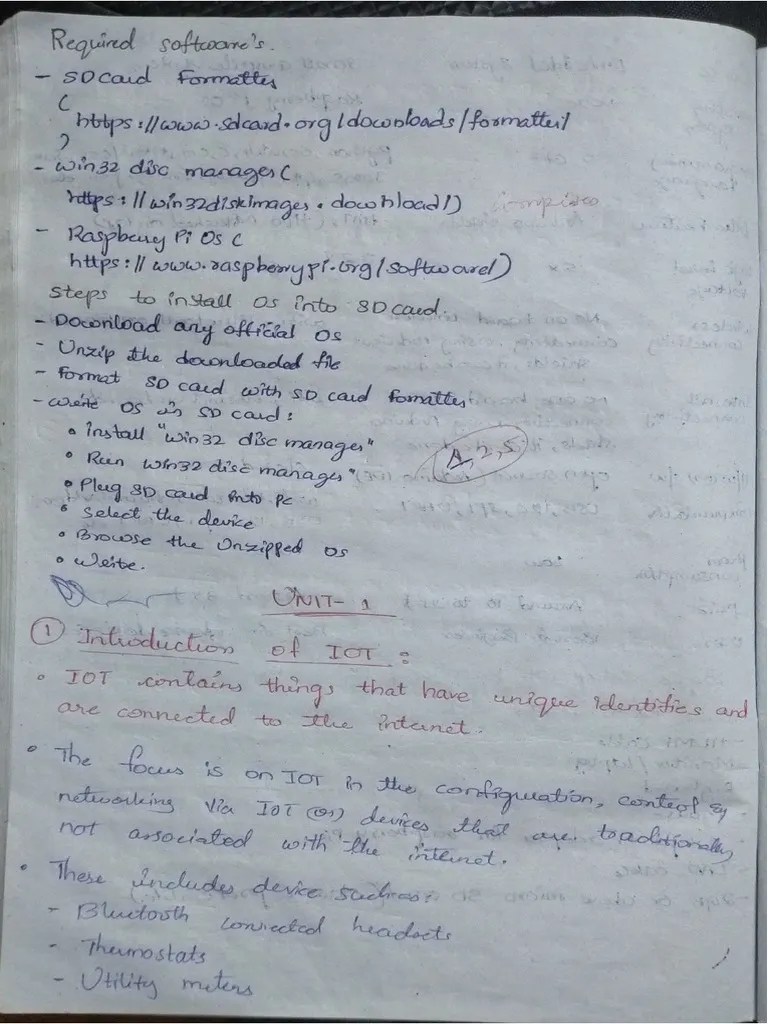 Required software's.
- SD card Formatter
(
https://www.sdcard.org/downloads/formatter/
)
- win32 disc manager(
https://win32diskimages.download/)
- Raspberry Pi Os (
https://www.raspberrypi.org/software/)
steps to install os into SD card.
- Download any official os
- Unzip the downloaded file
- format SD card with SD card formatter
- write OS in SD card:
• install "win32 disc manager"
• Run win32 disc manager"
• Plug SD card into pc
• select the device
• Browse the Unzipped os
• write.
1, 2, 5
UNIT-1
① Introduction of IOT:
• IOT contains things that have unique identifies and
are connected to the internet.
• The focus is on IOT in the configuration, control &
networking via IOT (or) devices that are traditionally
not associated with the internet.
• These includes device such as:
- Bluetooth connected headsets
- Thermostats
- Utility meters